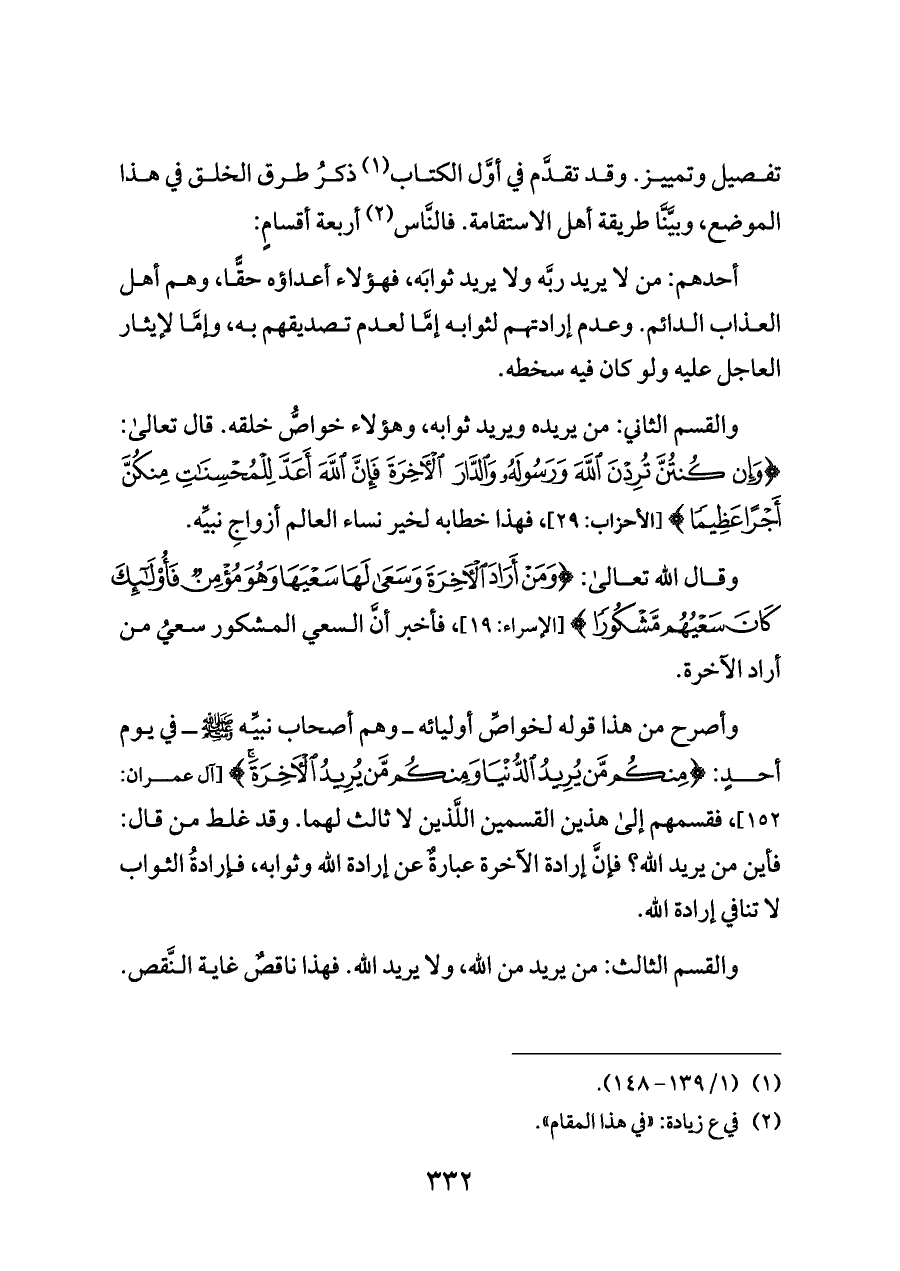 تفصيل وتمييز. وقد تقدَّم في أوَّل الكتاب(١) ذكرُ طرق الخلق في هذا
الموضع، وبيَّنَّا طريقة أهل الاستقامة. فالنَّاس(٢) أربعة أقسامٍ:
أحدهم: من لا يريد ربَّه ولا يريد ثوابَه، فهؤلاء أعداؤه حقًّا، وهم أهل
العذاب الدائم. وعدم إرادتهم لثوابه إمَّا لعدم تصديقهم به، وإمَّا لإيثار
العاجل عليه ولو كان فيه سخطه.
والقسم الثاني: من يريده ويريد ثوابه، وهؤلاء خواصُّ خلقه. قال تعالىٰ:
﴿وَإِن كُنتُنَّ تُرِدْنَ ٱللَّهَ وَرَسُولَهُۥ وَٱلدَّارَ ٱلْأَخِرَةَ فَإِنَّ ٱللَّهَ أَعَدَّ لِلْمُحْسِنَٰتِ مِنكُنَّ
أَجْرًا عَظِيمًا﴾ [الأحزاب: ٢٩]، فهذا خطابه لخير نساء العالم أزواجِ نبيِّه.
وقال الله تعالىٰ: ﴿وَمَنْ أَرَادَ ٱلْأَخِرَةَ وَسَعَىٰ لَهَا سَعْيَهَا وَهُوَ مُؤْمِنٌ فَأُوْلَٰٓئِكَ
كَانَ سَعْيُهُم مَّشْكُورًا﴾ [الإسراء: ١٩]، فأخبر أنَّ السعي المشكور سعيُ من
أراد الآخرة.
وأصرح من هذا قوله لخواصِّ أوليائه ـ وهم أصحاب نبيِّه ﷺ ـ في يوم
أحدٍ: ﴿مِنكُم مَّن يُرِيدُ ٱلدُّنْيَا وَمِنكُم مَّن يُرِيدُ ٱلْأَخِرَةَۚ﴾ [آل عمران:
١٥٢]، فقسمهم إلىٰ هذين القسمين اللَّذين لا ثالث لهما. وقد غلط من قال:
فأين من يريد الله؟ فإنَّ إرادة الآخرة عبارةٌ عن إرادة الله وثوابه، فإرادةُ الثواب
لا تنافي إرادة الله.
والقسم الثالث: من يريد من الله، ولا يريد الله. فهذا ناقصٌ غاية النَّقص.
(١) (١/ ١٣٩ – ١٤٨).
(٢) في ع زيادة: «في هذا المقام».
٣٣٢